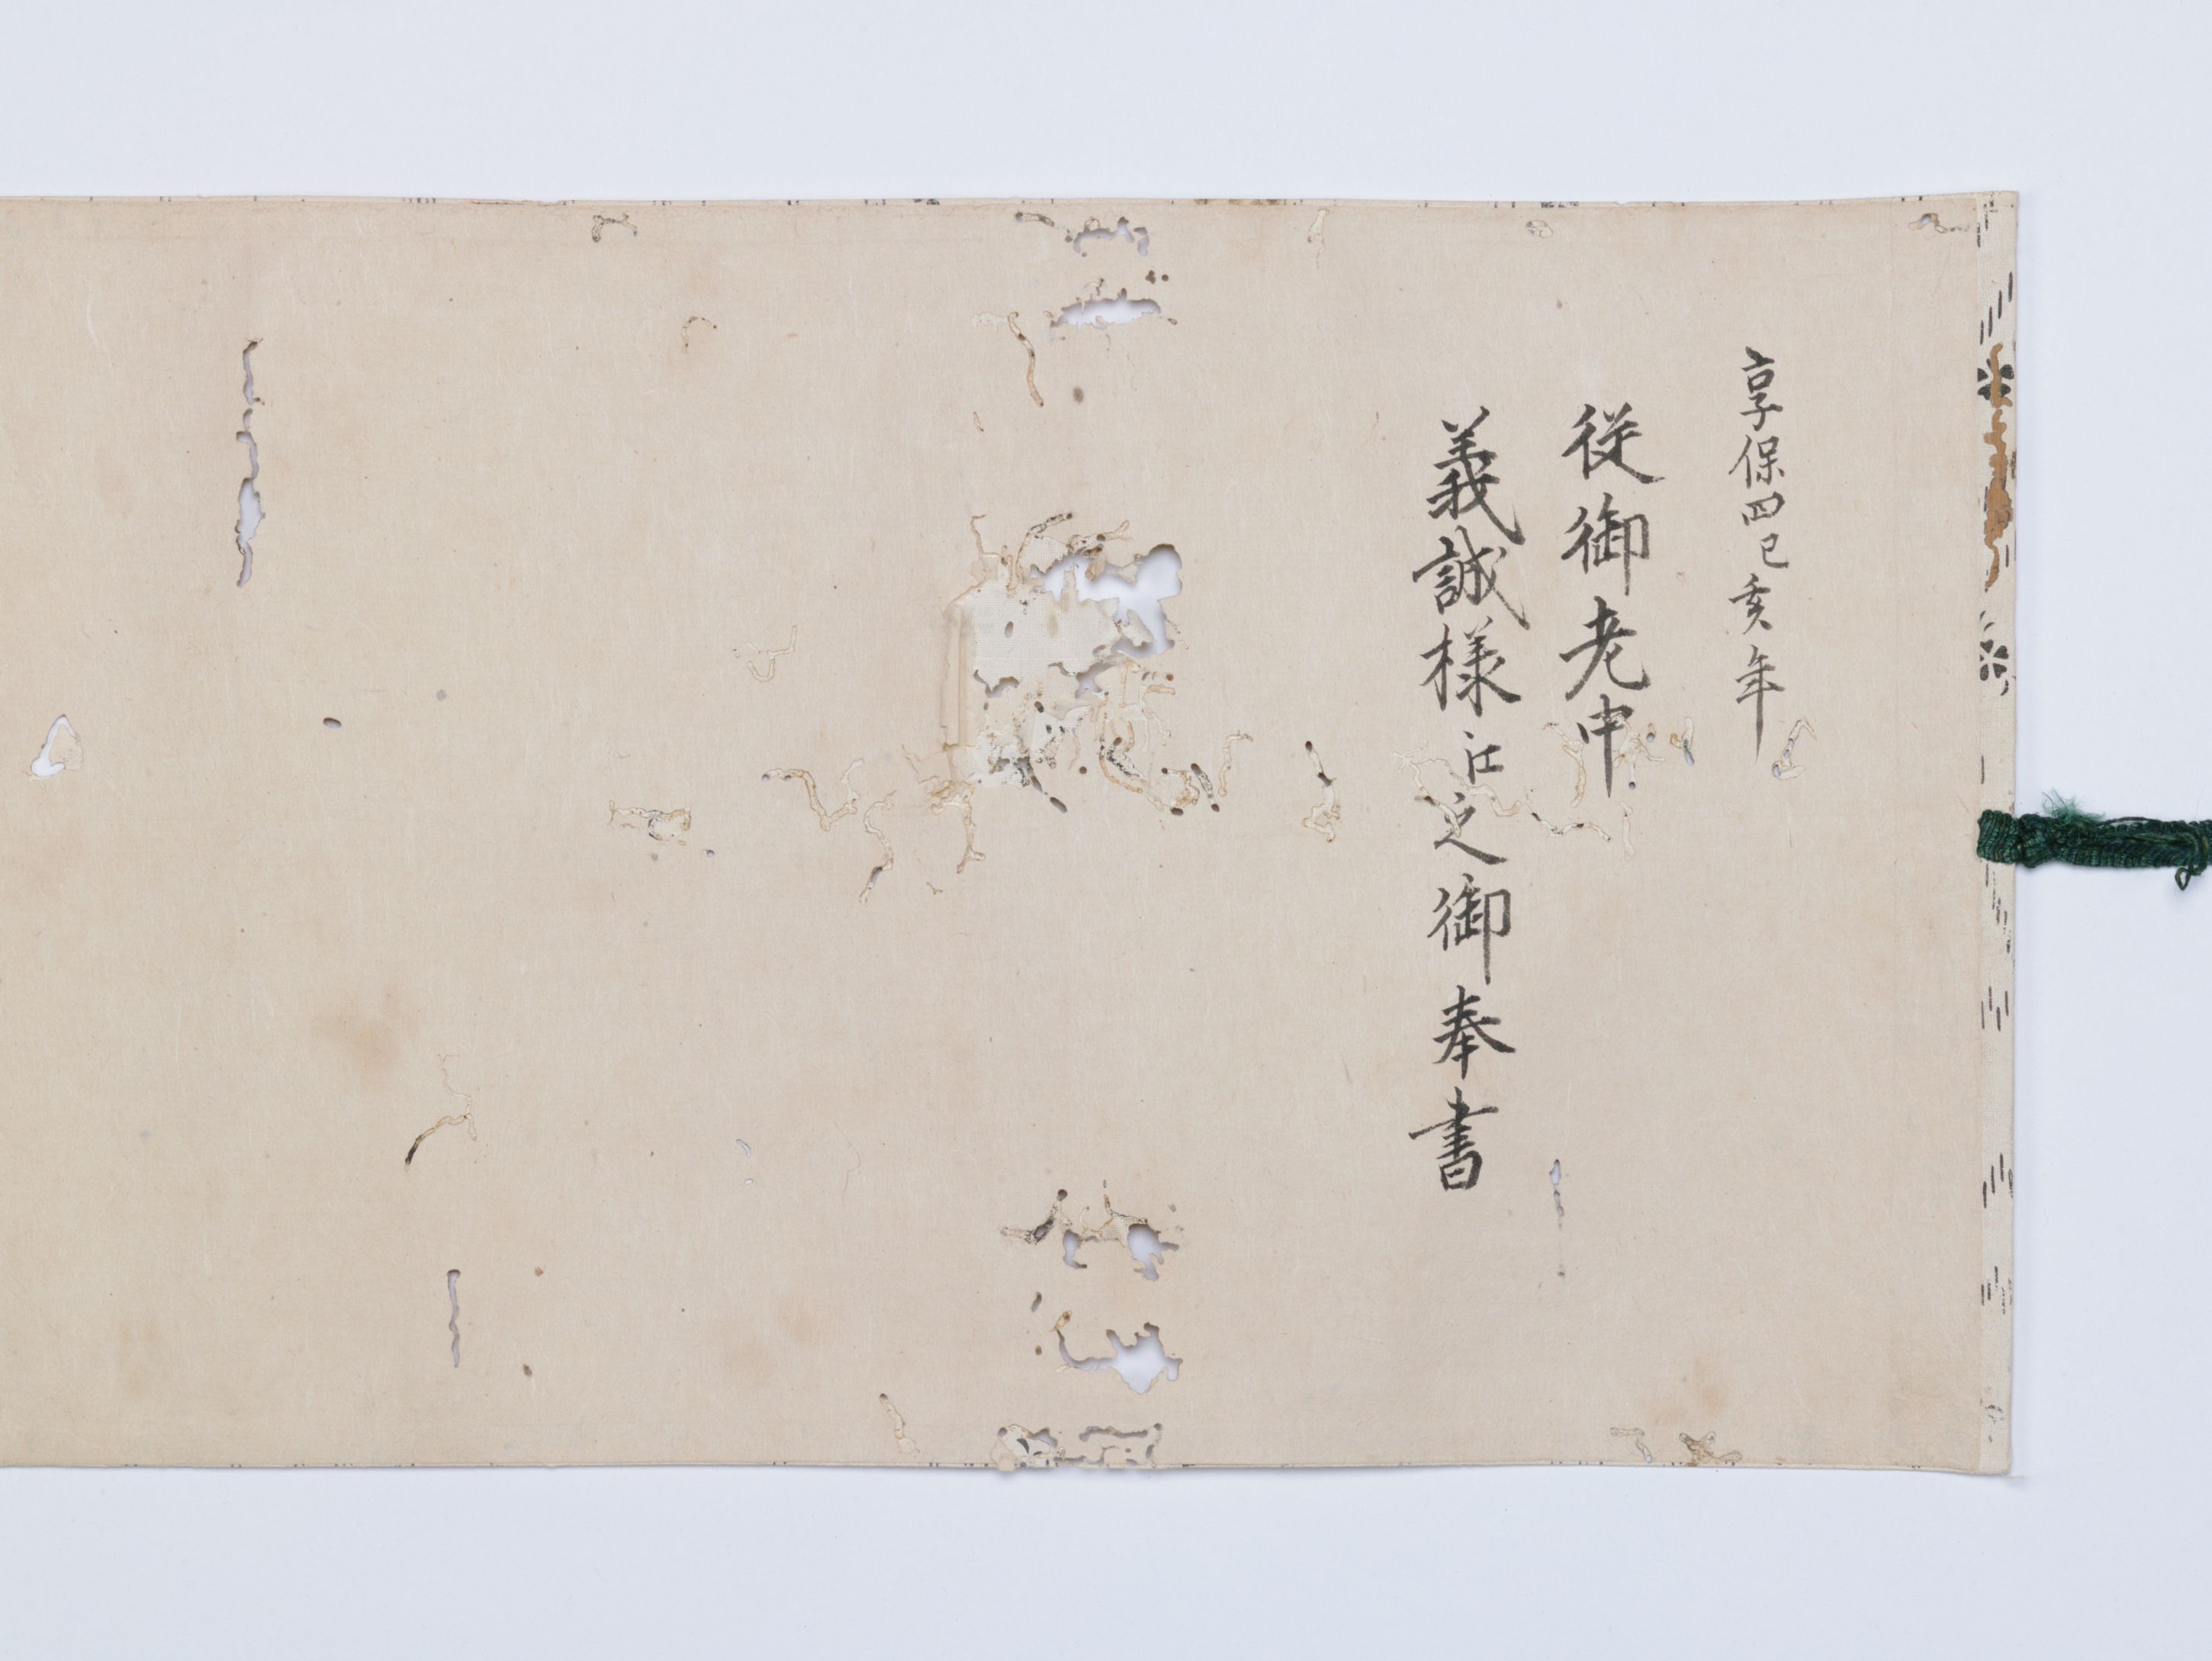 享保四己亥年
従御老中
義誠様江之御奉書